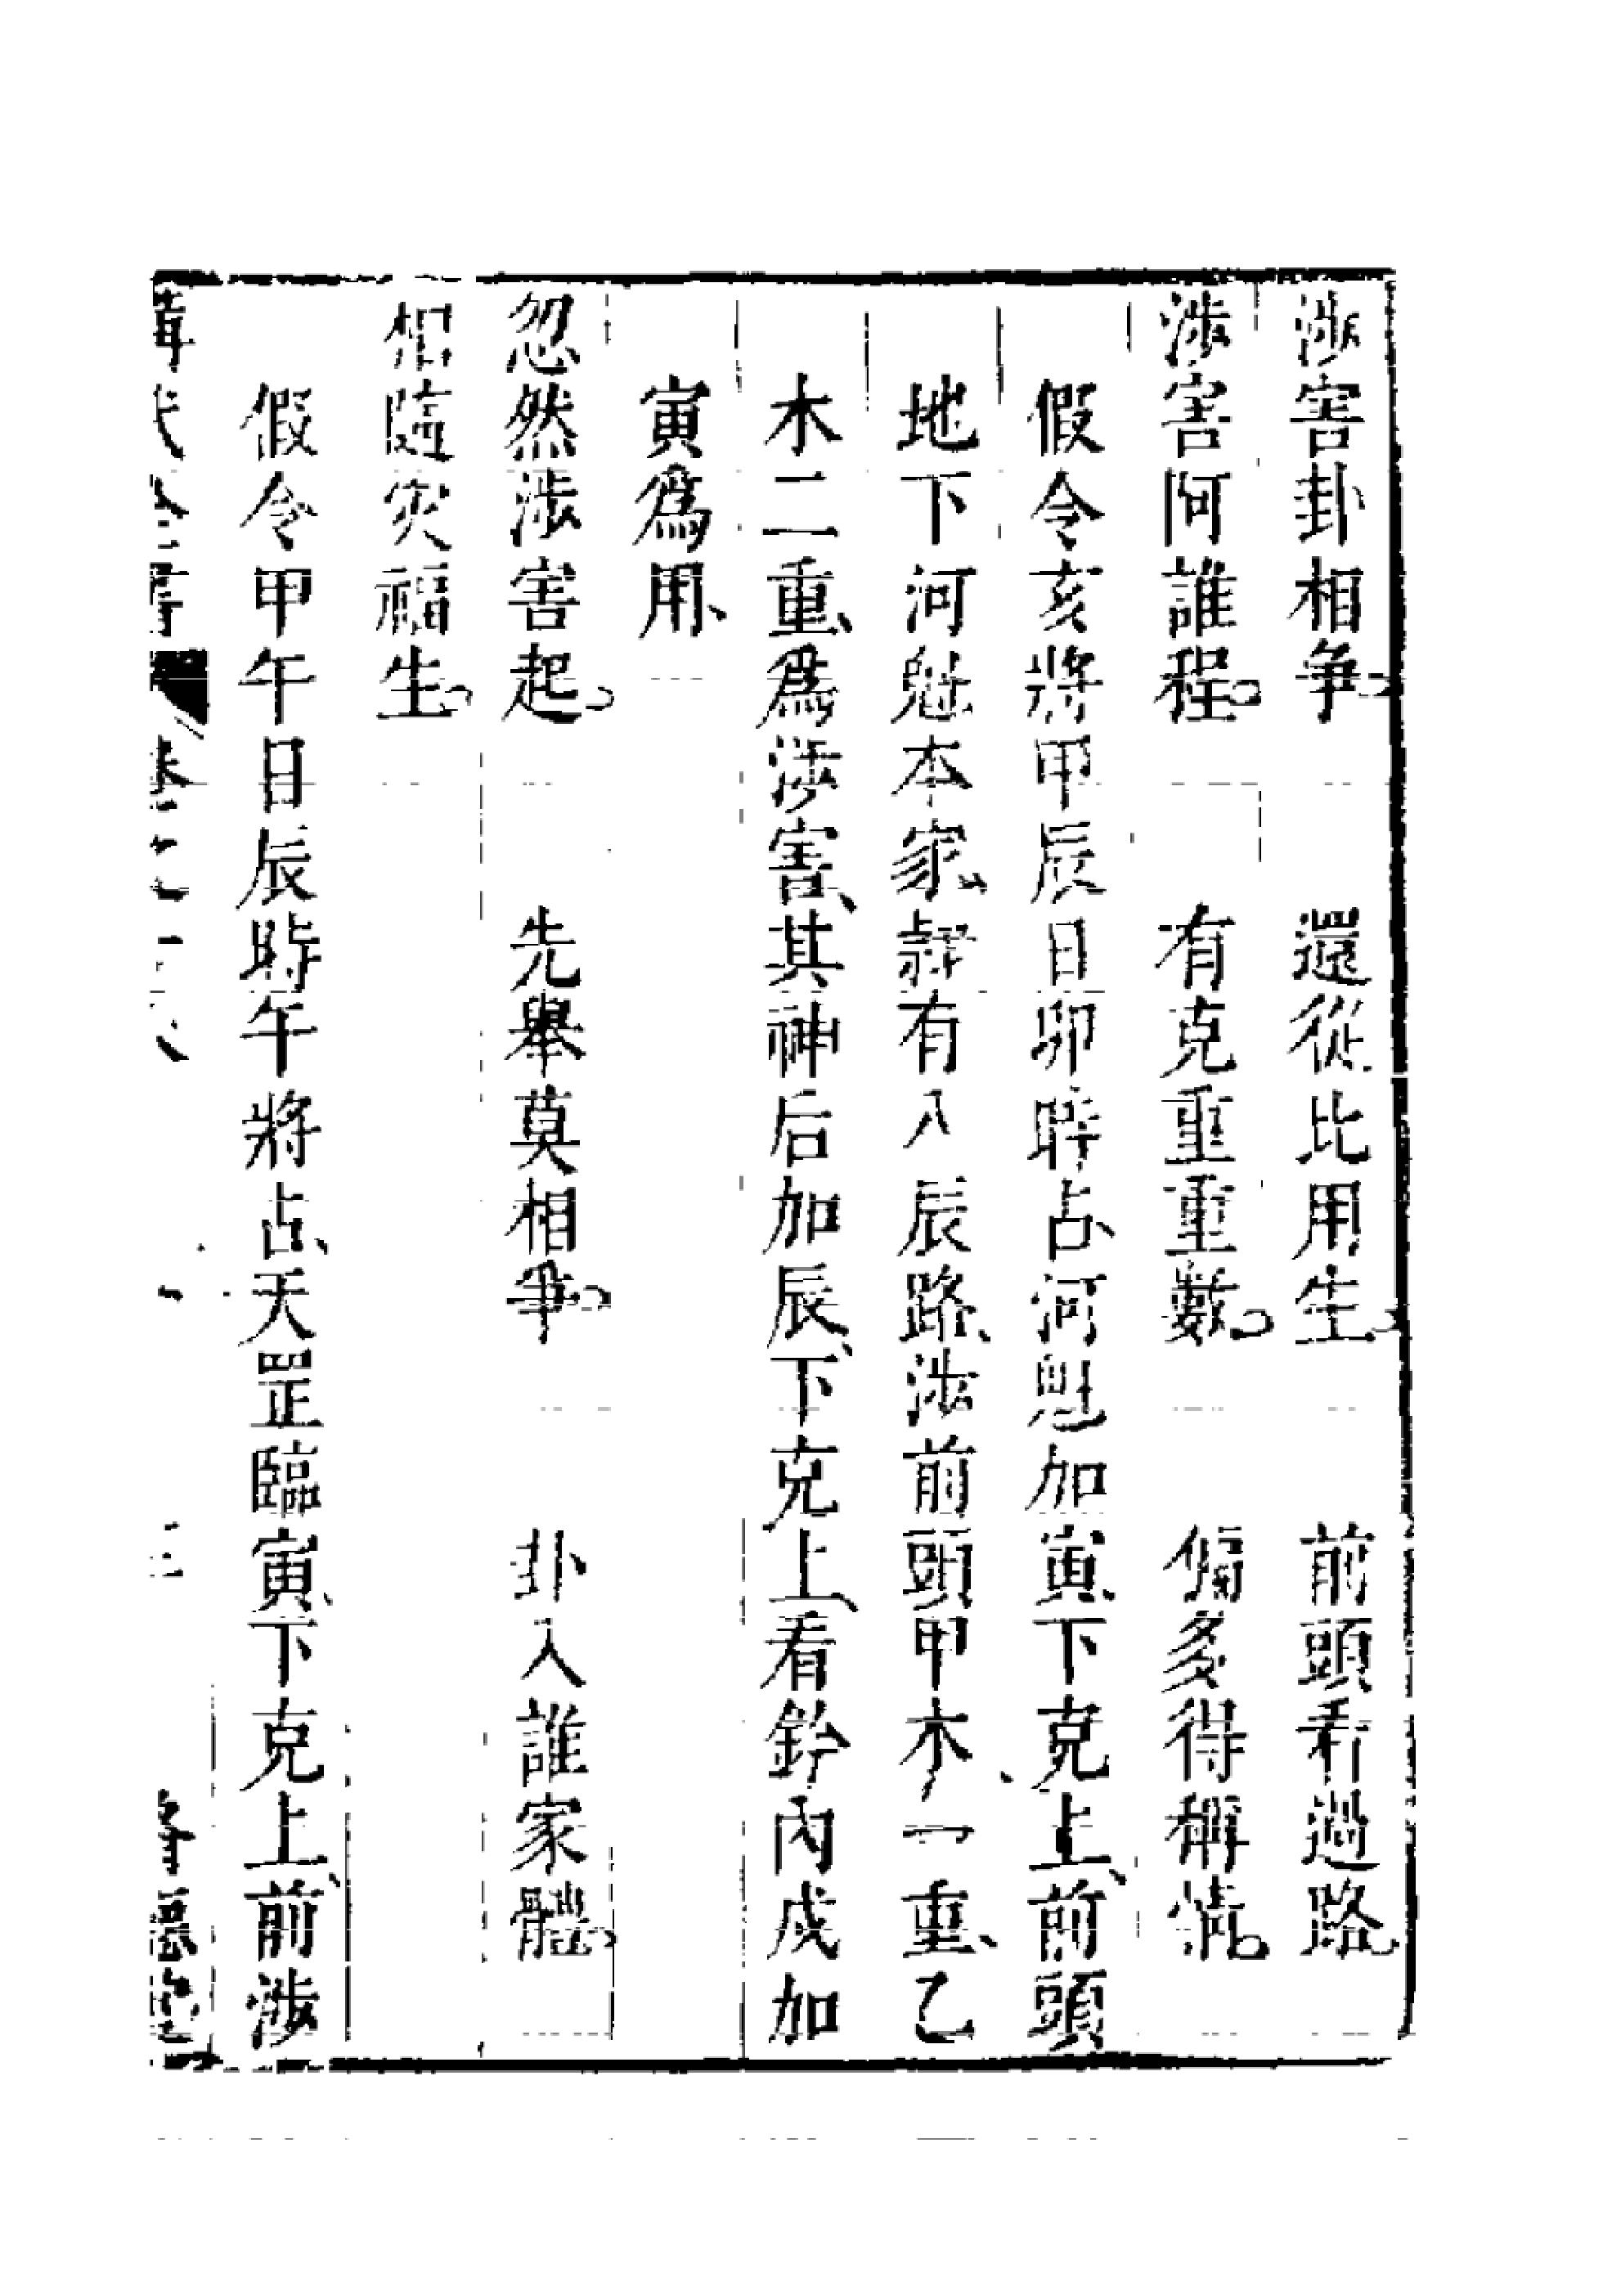 涉害卦相爭。　還從比用生。　前頭看過路。
涉害阿誰程。　有克重重數。　偏多得稱情。
假令亥將甲辰日卯時占河魁加寅、下克上、前頭
地下河魁本家、辭有八辰路、涉前頭甲木一重、乙
木二重、爲涉害、其神后加辰、下克上、看鈐內戌加
寅爲用、
忽然涉害起。　先舉莫相爭。　卦入誰家體。
相臨災福生。
假令甲午日辰時午將占、天罡臨寅、下克上、前涉